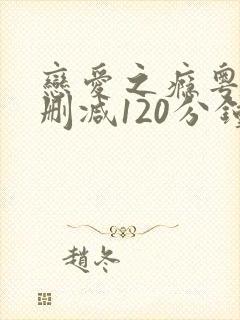 戀愛之癮粵
刪减120分鐘
趙冬